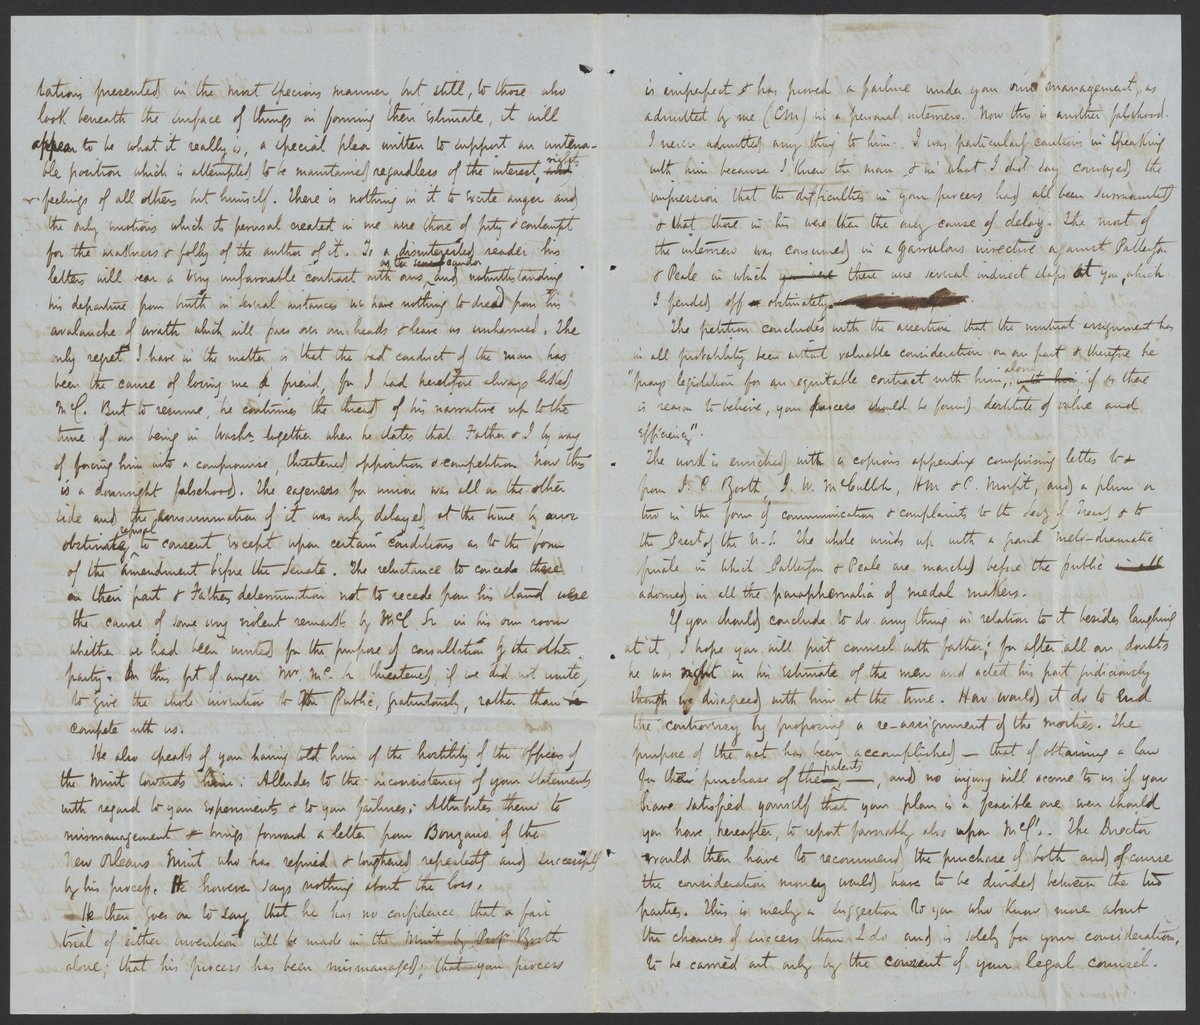 tations presented in the most specious manner but still, to those who
look beneath the surface of things in forming their estimate, it will
appear to be what it really is, a special plea written to support an untena-
ble position which is attempted to be maintained regardless of the interest, rights
& feelings of all others but himself. There is nothing in it to excite anger and
the only emotions which its perusal created in me were those of pity & contempt
for the weakness & folly of the author of it. To a disinterested reader his
letters will bear a very unfavorable contrast with ours in candor and notwithstanding
his departure from truth in several instances we have nothing to dread from his
avalanche of wrath which will pass over our heads & leave us unharmed. The
only regret I have in the matter is that the bad conduct of the man has
been the cause of losing me a friend, for I had heretofore always liked
McC. But to resume, he continues the thread of his narrative up to the
time of our being in Washn together when he states that Father & I by way
of forcing him into a compromise, threatened opposition & competition. Now this
is a downright falsehood. The eagerness for union was all on the other
side and the consummation of it was only delayed at the time by our
obstinate refusal to consent except upon certain conditions as to the form
of the amendment before the Senate. The reluctance to concede these
on their part & Fathers determination not to recede from his stand were
the cause of some very violent remarks by McC Sr in his own room
whither we had been invited for the purpose of consultation by the other
party. In this fit of anger Mr. Mc threatened, if we did not unite,
to give the whole invention to the Public, gratuitously, rather than
compete with us.
He also speaks of you having told him of the hostility of the officers of
the Mint towards him. Alludes to the inconsistency of your statements
with regard to your experiments & to your failures; Attributes them to
mismanagement & brings forward a letter from Bonzano of the
New Orleans Mint who has refined & toughened repeatedly and successfully
by his process. He however says nothing about the loss.
He then goes on to say that he has no confidence that a fair
trial of either invention will be made in the Mint by Profr Booth
alone; that his process has been mismanaged; that your process
is imperfect & has proved a failure under your own management, as
admitted by me (CM) in a personal interview. Now this is another falsehood.
I never admitted any thing to him. I was particularly cautious in speaking
with him because I knew the man & in what I did say conveyed the
impression that the difficulties in your process had all been surmounted
& that those in his were then the only cause of delay. The most of
the interview was consumed in a garrulous invective against Patterson
& Peale in which there were several indirect slaps at you, which
I fended off obstinately.
The petition concludes with the assertion that the mutual assignment has
in all probability been without valuable consideration on our part & therefore he
"prays legislation for an equitable contract with him, alone if as there
is reason to believe, your process should be found destitute of value and
efficiency".
The work is enriched with a copious appendix comprising letters to &
from J. C. Booth, I. W. McCulloh, HM & C. Morfit, and a plum or
two in the form of communications & complaints to the Secy of Treasy & to
the Presdt of the U.S. The whole winds up with a grand melo-dramatic
finale in which Patterson & Peale are marched before the public
adorned in all the paraphernalia of medal makers.
If you should conclude to do any thing in relation to it besides laughing
at it, I hope you will first counsel with father; for after all our doubts
he was right in his estimate of the men and acted his part judiciously
though we disagreed with him at the time. How would it do to end
the controversy by proposing a re-assignment of the moities. The
purpose of the act has been accomplished — that of obtaining a law
for the purchase of the patents —, and no injury will accrue to us if you
have satisfied yourself that your plan is a feasible one even should
you have, hereafter, to report favorably also upon McC's. The Director
would then have to recommend the purchase of both and of course
the consideration money would have to be divided between the two
parties. This is merely a suggestion to you who know more about
the chances of success than I do and is solely for your consideration,
to be carried out only by the consent of your legal counsel.